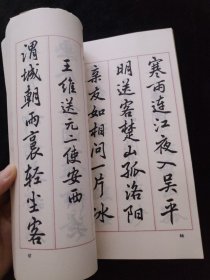 寒雨连江夜入吴平
明送客楚山孤洛阳
亲友如相问一片冰
王维送元二使安西
渭城朝雨裛轻尘客